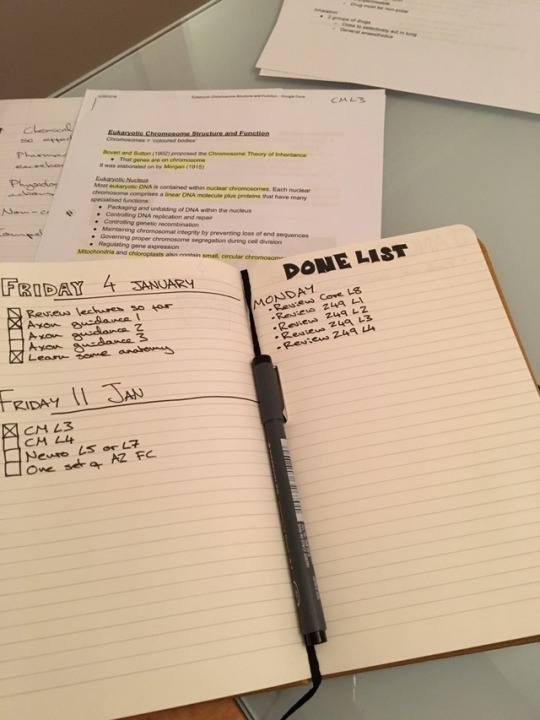 Drug must be non-polar
Inhalation:
2 groups of drugs
Those to selectively act in lung
General anaesthetics
Eukaryotic Chromosome Structure and Function - Google Docs
CM L3
Eukaryotic Chromosome Structure and Function
Chromosomes = 'coloured bodies'
Boveri and Sutton (1902) proposed the Chromosome Theory of Inheritance:
That genes are on chromosome
It was elaborated on by Morgan (1915)
Eukaryotic Nucleus
Most eukaryotic DNA is contained within nuclear chromosomes. Each nuclear
chromosome comprises a linear DNA molecule plus proteins that have many
specialised functions:
Packaging and unfolding of DNA within the nucleus
Controlling DNA replication and repair
Controlling genetic recombination
Maintaining chromosomal integrity by preventing loss of end sequences
Governing proper chromosome segregation during cell division
Regulating gene expression
Mitochondria and chloroplasts also contain small, circular chromosome
Chemical
so
Non-c
FRIDAY 4 JANUARY
Review lectures so far
Axon guidance 1
Axon guidance 2
Axon guidance 3
Learn some anatomy
FRIDAY 11 JAN
CM L3
CM L4
Neuro L5 or L7
One set of A2 FC
DONE LIST
MONDAY
Review Core L8
Review 249 L1
Review 249 L2
Review 249 L3
Review 249 L4